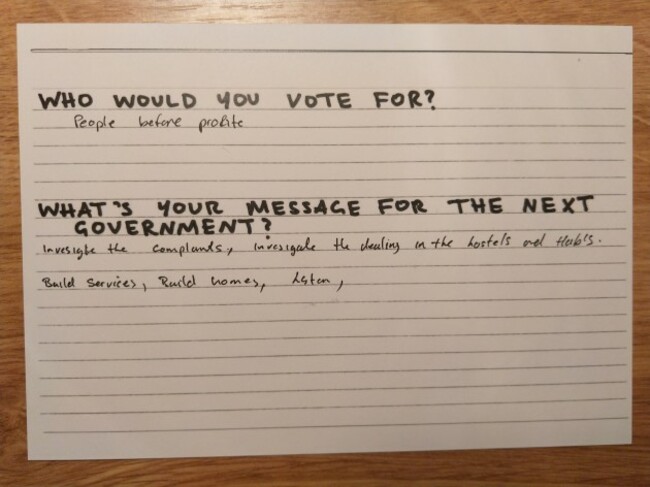 WHO WOULD YOU VOTE FOR?
People before profite
WHAT'S YOUR MESSAGE FOR THE NEXT
GOVERNMENT?
the complands, the dealing in the hostels and
Build services, Build homes, listen,